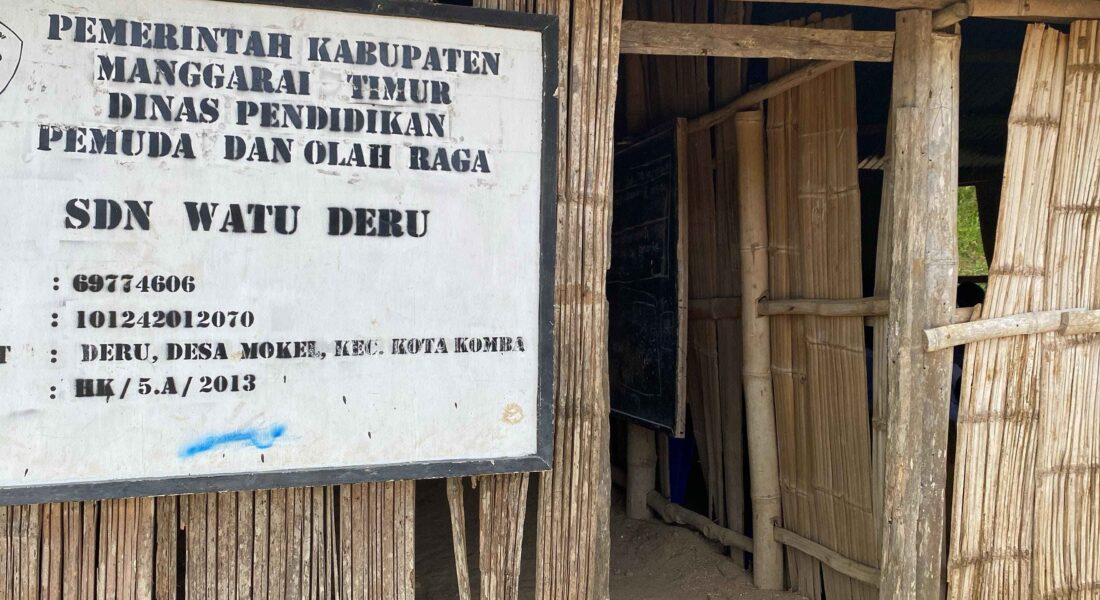 PEMERINTAH KABUPATEN
MANGGARAI TIMUR
DINAS PENDIDIKAN
PEMUDA DAN OLAH RAGA
SDN WATU DERU
: 69774606
: 101242012070
T : DERU, DESA MOKEL, KEC. KOTA KOMBA
: HK / 5.A / 2013